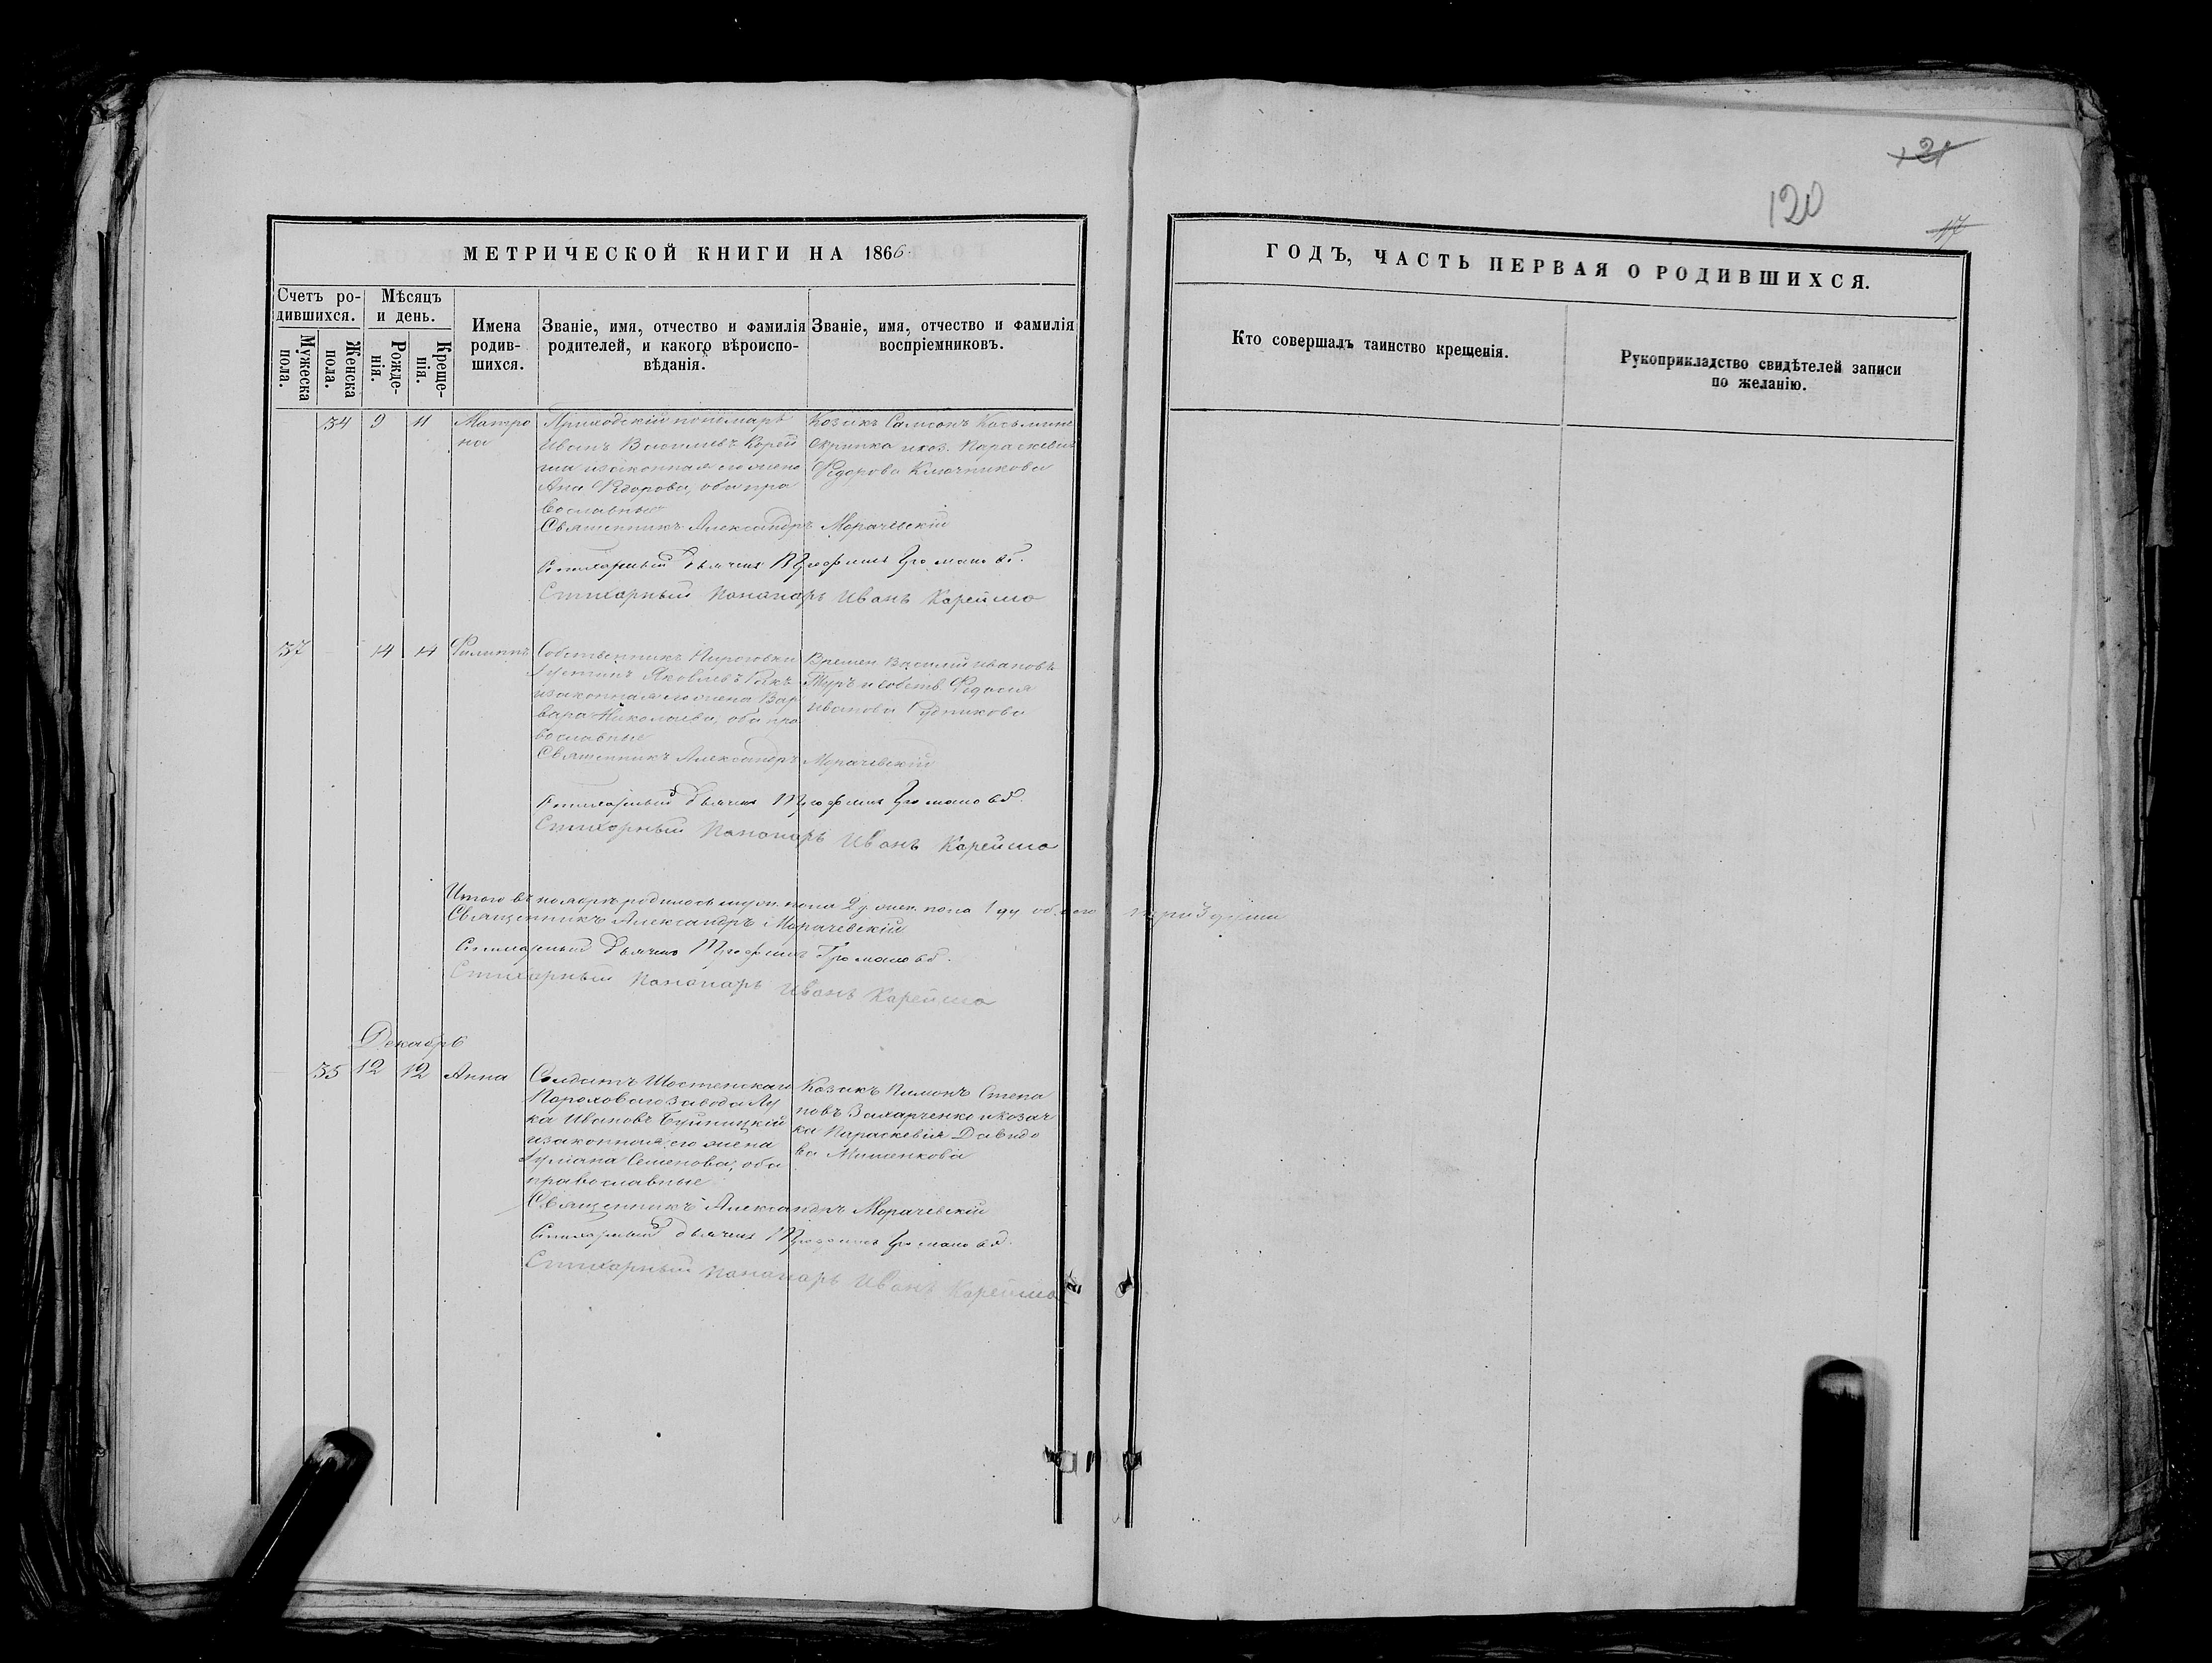 121
120
17
МЕТРИЧЕСКОЙ КНИГИ НА 1866
ГОДЪ, ЧАСТЬ ПЕРВАЯ О РОДИВШИХСЯ.
Счетъ ро-
дившихся.
Мужеска
пола.
Женска
пола.
Мѣсяцъ
и день.
Рожде-
нія.
Креще-
нія.
Имена
родив-
шихся.
Званіе, имя, отчество и фамилія
родителей, и какого вѣроиспо-
вѣданія.
Званіе, имя, отчество и фамилія
воспріемниковъ.
Кто совершалъ таинство крещенія.
Рукоприкладство свидѣтелей записи
по желанію.
34 9 11 Матро
на
Приходскій пономарь
Иванъ Васильевъ Корей
ша и законная его жена
Анна Федорова, оба пра
вославные
Козакъ Самсонъ Косьминъ
и коз. Параскевія
Федорова Ключникова
Священникъ Александръ Морачевскій
Стихарный дьячекъ Трофимъ
Стихарный Понамарь Иванъ Корейша
37 14 14 Филиппъ
Собственникъ Пироговки
Яковлевъ
и законная его жена Вар
вара Николаева, оба пра
вославные
Времен. Василій Ивановъ
и собств. Федосія
Иванова
Священникъ Александръ Морачевскій
Стихарный дьячекъ Трофимъ
Стихарный Понамарь Иванъ Корейша
Итого въ ноябрѣ родилось муж. пола 2 жен. пола 1 об. его три 3 души
Священникъ Александръ Морачевскій
Стихарный дьячекъ Трофимъ
Стихарный Понамарь Иванъ Корейша
Декабрь
35 12 12 Анна
Солдатъ Шостенскаго
Пороховаго Завода Лу
ка Ивановъ Буйницкій
и законная его жена
Іуліана Семенова, оба
православные
Козакъ Пимонъ Степа
новъ Захарченко и козач
ка Параскевія Давидо
ва Мишенкова
Священникъ Александръ Морачевскій
Стихарный дьячекъ Трофимъ
Стихарный Понамарь Иванъ Корейша